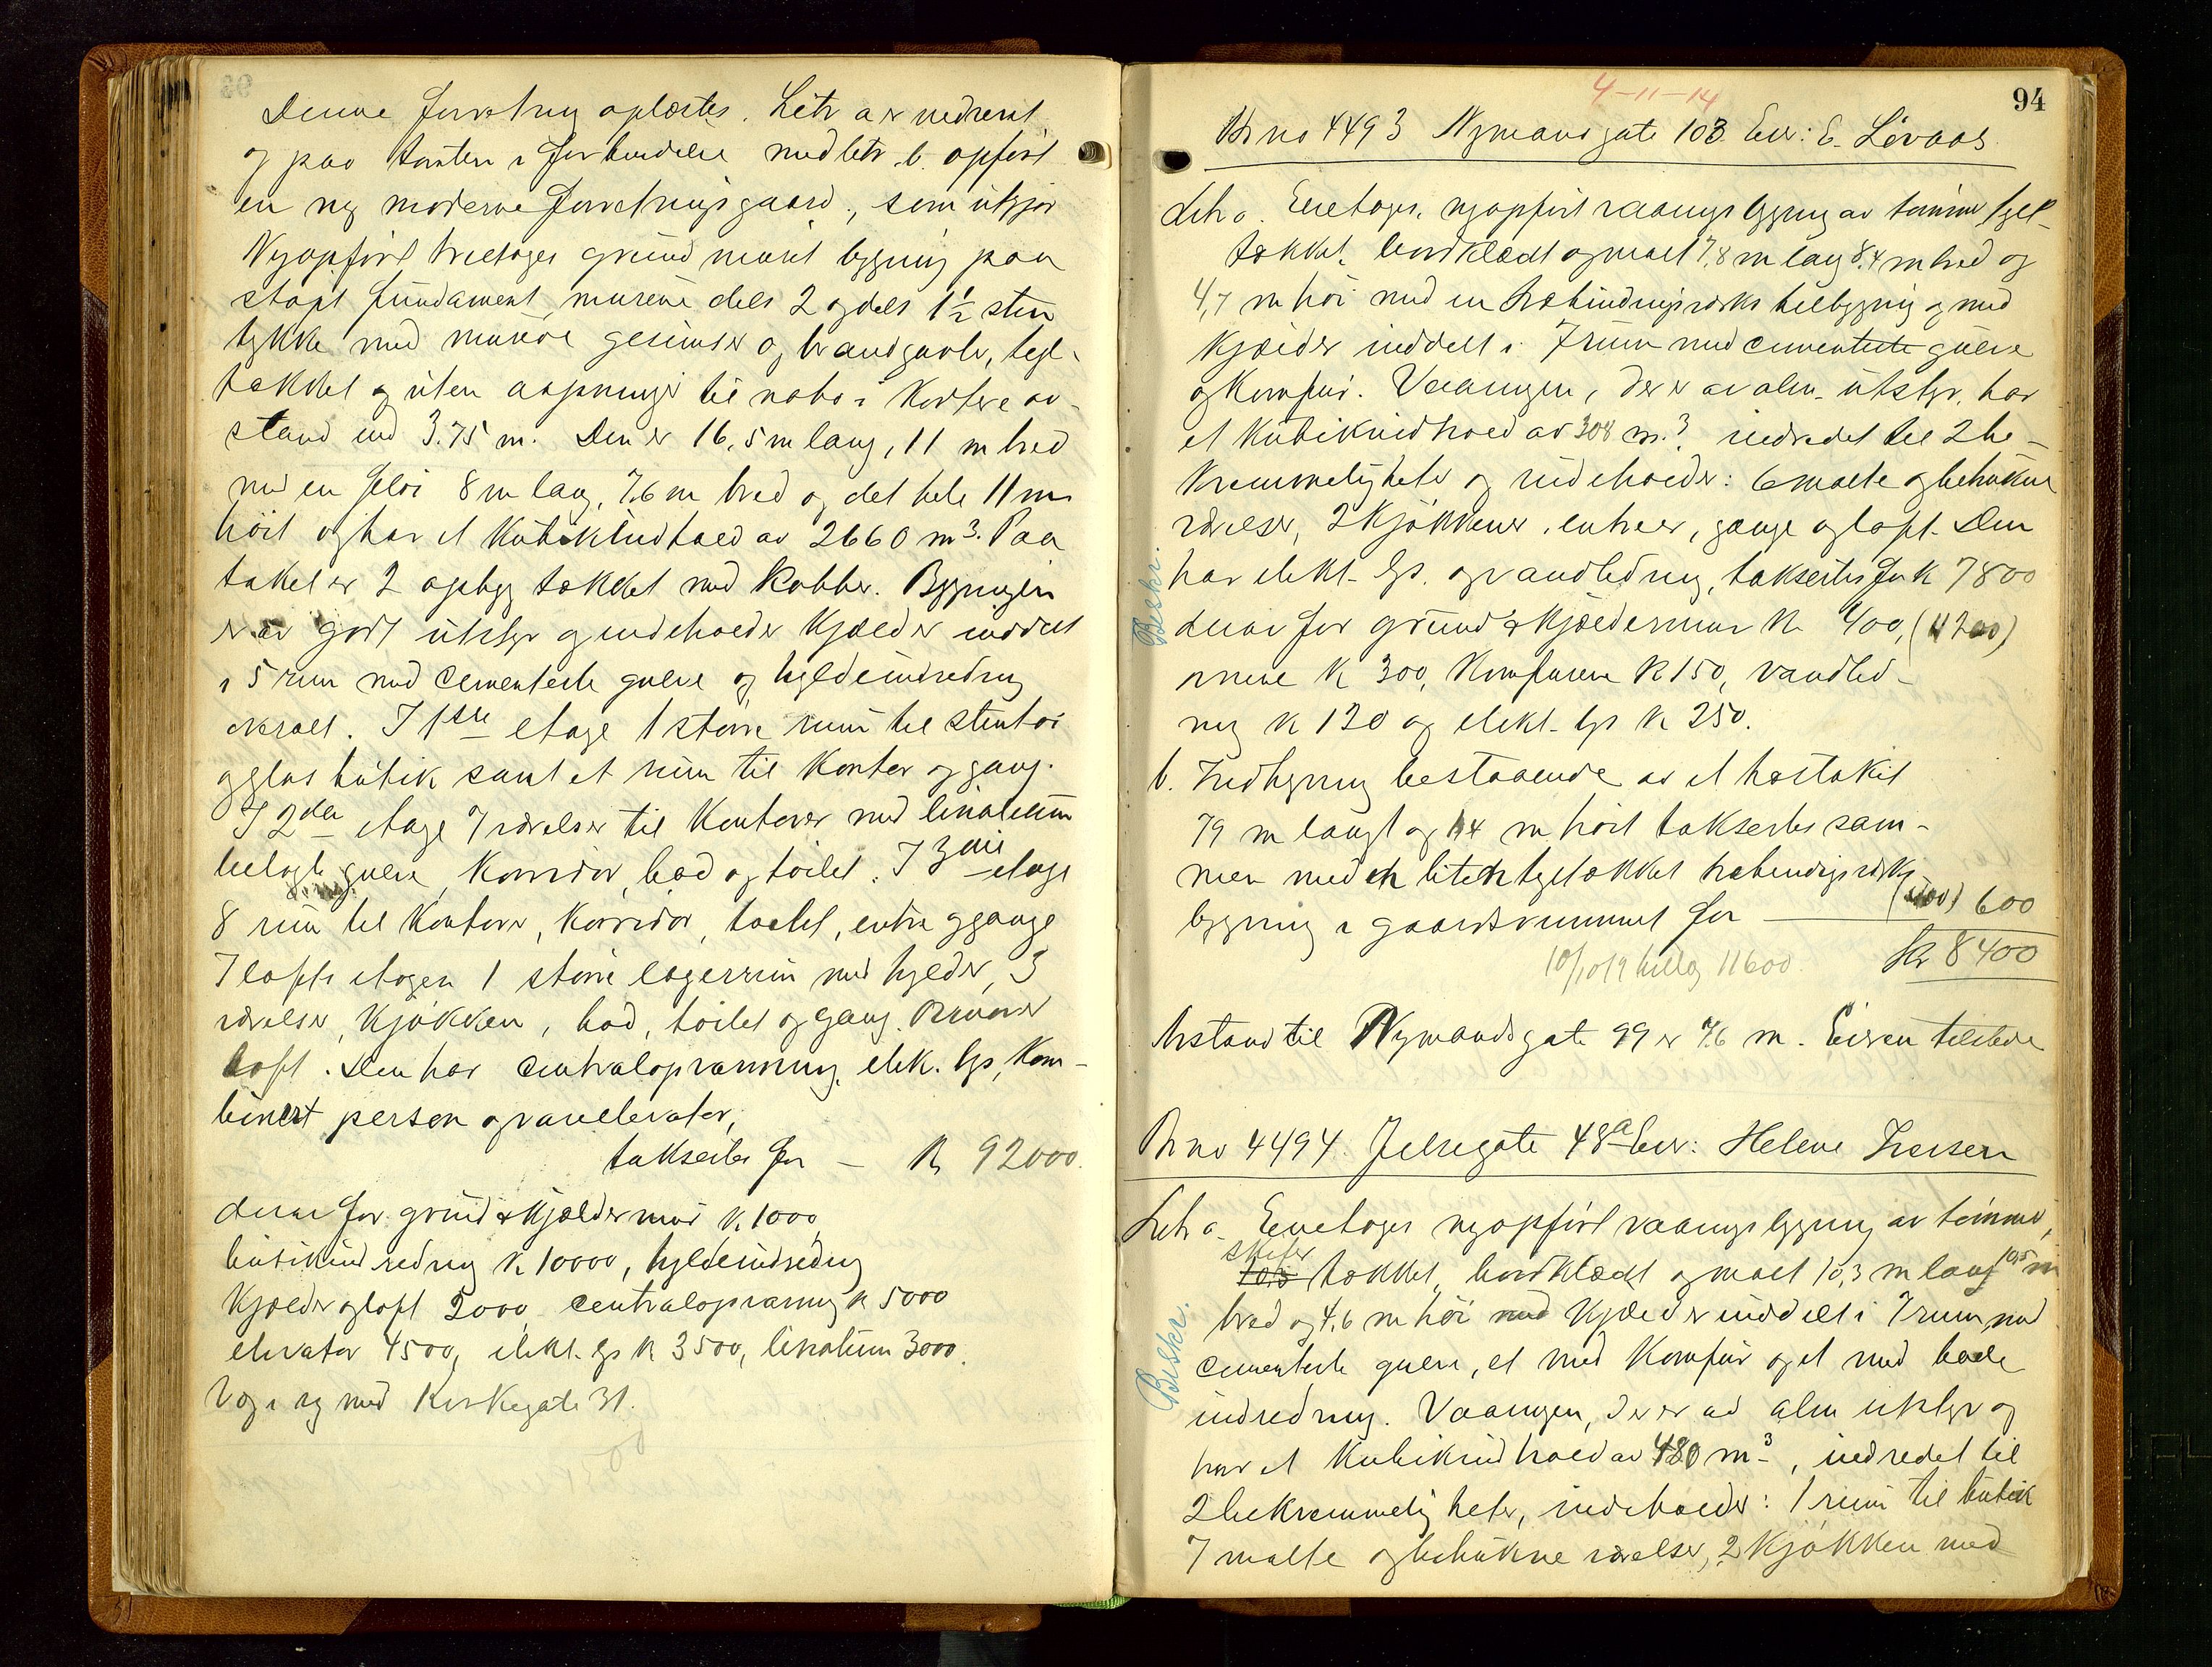 Denne forretning oplæstes. Litr a er nedrevet
og paa tomten i forbindelse med litr. b. opført
en ny moderne forretningsgaard, som utgjør
Nyopført treetages grundmuret bygning paa
støpt fundament, murene dels 2 og dels 1½ sten
tykke med murede gesimser og brandgavle, tegl-
tækket og uten aapninger til nabo i kortere av-
stand end 3.75 m. Den er 16,5 m lang, 11 m bred
med en fløi 8 m lang, 7,6 m bred og det hele 11 m
høit og har et kubikindhold av 2660 m³. Paa
taket er 2 opbyg tækket med kobber. Bygningen
er av godt utstyr og indeholder kjælder inddelt
i 5 rum med cementerte gulve og hyldeindredning
overalt. I 1ste etage 1 større rum til stentøi
og glas butik samt et rum til kontor og gang.
I 2den etage 7 værelser til kontorer med linoleum
belagte gulve, korridor, bad og toilet. I 3die etage
8 rum til kontorer, korridor, toilet, entre og gange
I lofts etagen 1 større lagerrum med hylder, 3
værelser, kjøkken, bad, toilet og gang. Derover
loft. Den har centralopvarming, elek. lys, kom-
binert person og vareelevator,
takseres for — K 92000.
derav for grund & kjældermur k. 1000,
butikindredning k 10000, hyldeindredning
kjælder og loft 2000, centralopvarming k 5000
elevator 4500, elekt. lys k 3500, linoleum 3000.
V og i ny med Kirkegate 31.
4-11-14
94
Br no 4493 Nymansgate 103. Eier: E. Løvaas
Litr a. Eenetages, nyopført vaaningsbygning av tømmer, tegl-
tækket, bordklædt og malt 7,8 m lang 8,4 m bred og
4,7 m høi med en træbindingsverks tilbygning og med
kjælder inddelt i 7 rum med cementerte gulve
og komfur. Vaaningen, der er av alm. utstyr, har
et kubikindhold av 308 m.³ indredet til 2 be-
kvemmeligheter og indeholder: 6 malte og betrukne
værelser, 2 kjøkkener, entreer, gange og loft. Den
har elekt. lys. og vandledning, takseres for k 7800
derav for grund & kjældermur k 400, (4200)
ovnene k 300, komfurene k 150, vandled-
ning k 120 og elekt. lys k 250.
b. Indhegning bestaaende av et
79 m langt og 1,4 m høit takseres sam-
men med en liten tegltækket træbindingsverks
bygning i gaardsrummet for — 600
Kr 8400
10/10 19 tillæg 11600.
Avstand til Nymandsgate 99 er 7,6 m. Eieren tilstede
Br no 4494. Jelsegate 48a Eier: Helene Iversen
Litr a. Eenetages nyopført vaaningsbygning av tømmer,
skifer
tækket, bordklædt og malt 10,3 m lang 10,5 m
bred og 4,6 m høi med kjælder inddelt i 7 rum med
cementerte gulve, et med komfur og et med bade
indredning. Vaaningen, der er av alm utstyr og
har et kubikindhold av 480 m³, indredet til
2 bekvemmeligheter, indeholder: 1 rum til butik
7 malte og betrukne værelser, 2 kjøkken med
Beskr.
Beskr.